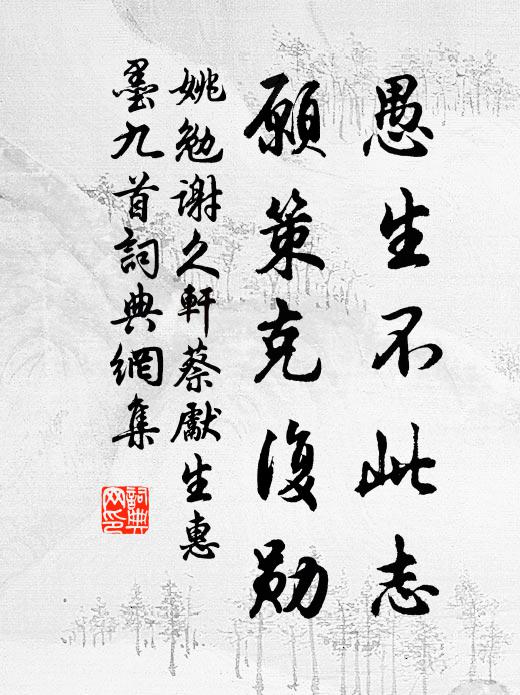 愚生不此志
願策克復勛
姚勉謝久軒蔡獻生惠
墨九首詞典網集
詞典
网印